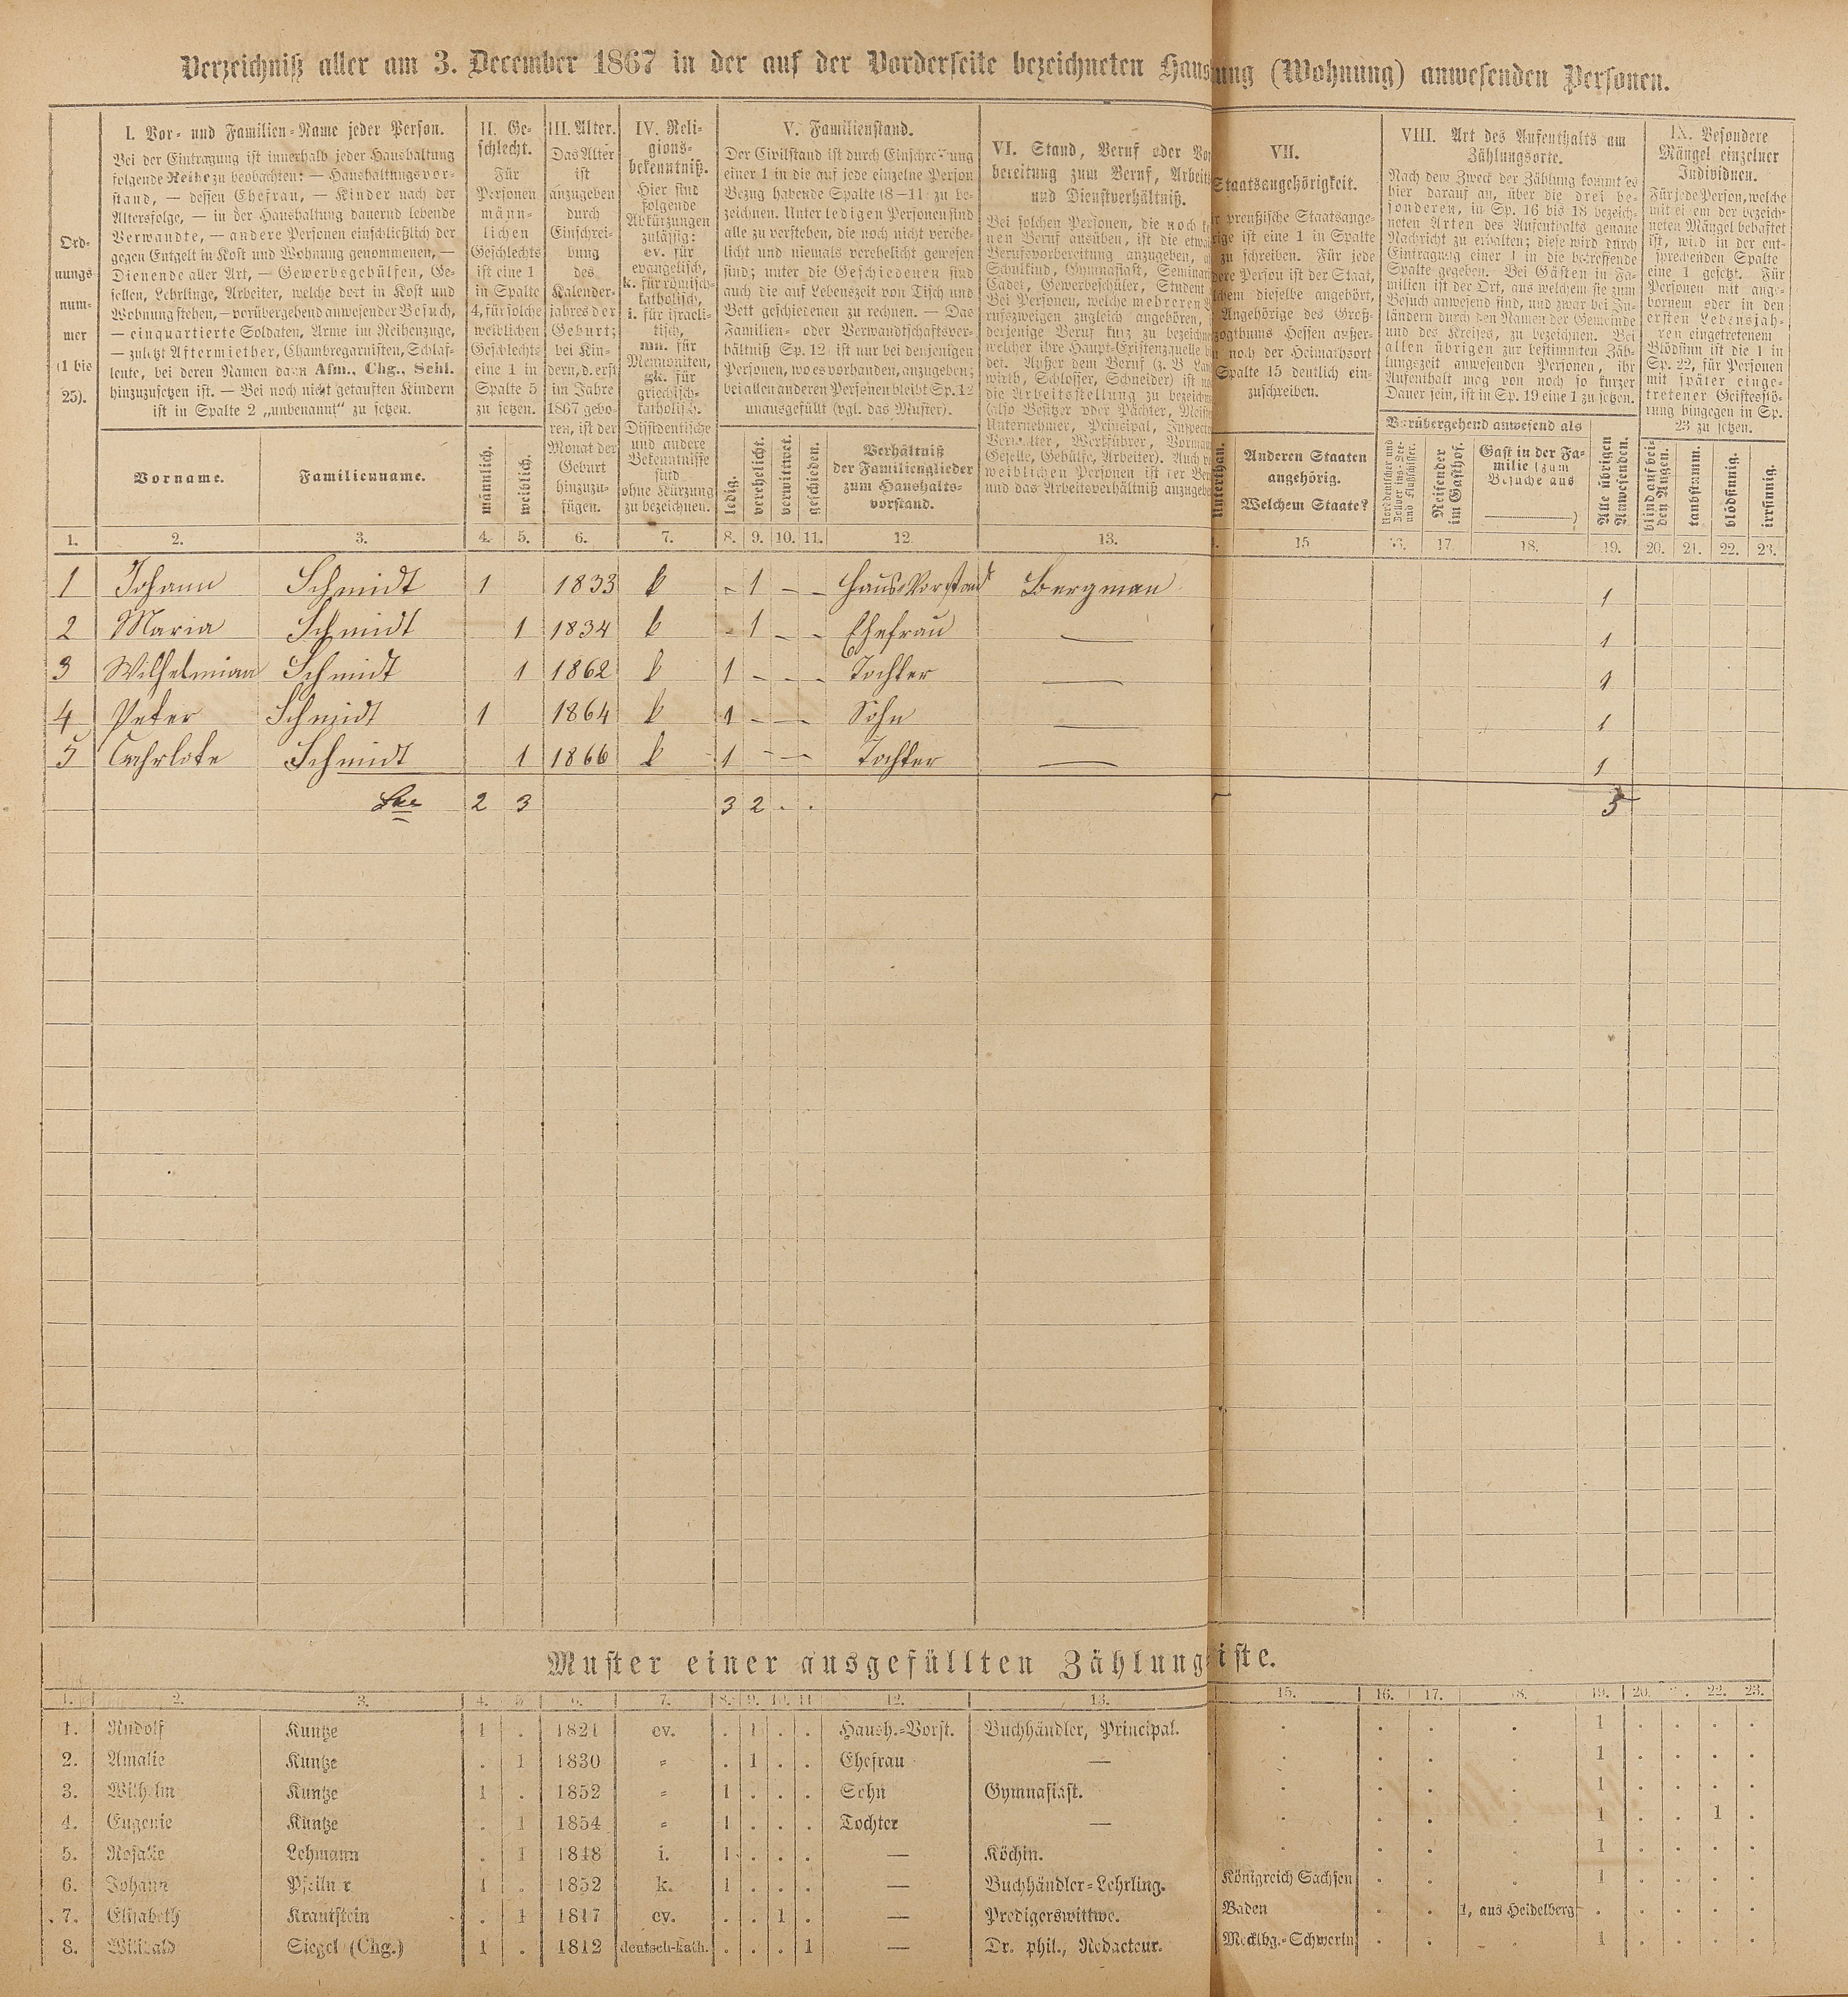 Verzeichniß aller am 3. December 1867 in der auf der Vorderseite bezeichneten Hausung (Wohnung) anwesenden Personen.
Ord-
nungs
num-
mer
(1 bis
25).
I. Vor- und Familien-Name jeder Person.
Bei der Eintragung ist innerhalb jeder Haushaltung
folgende Reihe zu beobachten: — Haushaltungsvor-
stand, — dessen Ehefrau, — Kinder nach der
Altersfolge, — in der Haushaltung dauernd lebende
Verwandte, — andere Personen einschließlich der
gegen Entgelt in Kost und Wohnung genommenen, —
Dienende aller Art, — Gewerbsgehülfen, Ge-
sellen, Lehrlinge, Arbeiter, welche dort in Kost und
Wohnung stehen, — vorübergehend anwesender Besuch,
— einquartierte Soldaten, Arme im Reihenzuge,
— zuletzt Aftermiether, Chambregarnisten, Schlaf-
leute, bei deren Namen dann Afm., Chg., Schl.
hinzuzusetzen ist. — Bei noch nicht getauften Kindern
ist in Spalte 2 „unbenannt“ zu setzen.
Vorname.
Familienname.
II. Ge-
schlecht.
Für
Personen
männ-
lichen
Geschlechts
ist eine 1
in Spalte
4, für solche
weiblichen
Geschlechts
eine 1 in
Spalte 5
zu setzen.
männlich.
weiblich.
III. Alter.
Das Alter
ist
anzugeben
durch
Einschrei-
bung
des
Kalender-
jahres der
Geburt;
bei Kin-
dern, d. erst
im Jahre
1867 gebo-
ren, ist der
Monat der
Geburt
hinzuzu-
fügen.
IV. Reli-
gions-
bekenntniß.
Hier sind
folgende
Abkürzungen
zulässig:
ev. für
evangelisch,
k. für römisch-
katholisch,
i. für israeli-
tisch,
mn. für
Mennoniten,
gk. für
griechisch-
katholisch.
Dissidentische
und andere
Bekenntnisse
sind
ohne Kürzung
zu bezeichnen.
V. Familienstand.
Der Civilstand ist durch Einschreibung
einer 1 in die auf jede einzelne Person
Bezug habende Spalte (8—11) zu be-
zeichnen. Unter ledigen Personen sind
alle zu verstehen, die noch nicht verehe-
licht und niemals verehelicht gewesen
sind; unter die Geschiedenen sind
auch die auf Lebenszeit von Tisch und
Bett geschiedenen zu rechnen. — Das
Familien- oder Verwandtschaftsver-
hältniß (Sp. 12) ist nur bei denjenigen
Personen, wo es vorhanden, anzugeben;
bei allen anderen Personen bleibt Sp. 12
unausgefüllt (vgl. das Muster).
ledig.
verehelicht.
verwittwet.
geschieden.
Verhältniß
der Familienglieder
zum Haushalts-
vorstand.
VI. Stand, Beruf oder Vor
bereitung zum Beruf, Arbeits
und Dienstverhältniß.
Bei solchen Personen, die noch
nen Beruf ausüben, ist die etwai
Berufsvorbereitung anzugeben,
Schulkind, Gymnasiast, Seminar
Cadet, Gewerbeschüler, Student
Bei Personen, welche mehreren
rufszweigen zugleich angehören,
derjenige Beruf kurz zu bezeichn
welcher ihre Haupt-Existenzquelle
det. Außer dem Beruf (z. B. Land
wirth, Schlosser, Schneider) ist
die Arbeitsstellung zu bezeichn
(also Besitzer oder Pächter, Meiste
Unternehmer, Principal, Inspecto
Verwalter, Werkführer, Vorman
Geselle, Gehülfe, Arbeiter). Auch
weiblichen Personen ist der Be
und das Arbeitsverhältniß anzugebe
VII.
Staatsangehörigkeit.
preußische Staatsange-
rige ist eine 1 in Spalte
zu schreiben. Für jede
dere Person ist der Staat,
chem dieselbe angehört,
Angehörige des Groß-
zogthums Hessen außer-
noch der Heimathsort
Spalte 15 deutlich ein-
zuschreiben.
Unterthan.
Anderen Staaten
angehörig.
Welchem Staate?
VIII. Art des Aufenthalts am
Zählungsorte.
Nach dem Zweck der Zählung kommt es
hier darauf an, über die drei be-
sonderen, in Sp. 16 bis 18 bezeich-
neten Arten des Aufenthalts genaue
Nachricht zu erhalten; diese wird durch
Eintragung einer 1 in die betreffende
Spalte gegeben. Bei Gästen in Fa-
milien ist der Ort, aus welchem sie zum
Besuch anwesend sind, und zwar bei In-
ländern durch den Namen der Gemeinde
und des Kreises, zu bezeichnen. Bei
allen übrigen zur bestimmten Zäh-
lungszeit anwesenden Personen, ihr
Aufenthalt mag von noch so kurzer
Dauer sein, ist in Sp. 19 eine 1 zu setzen.
Vorübergehend anwesend als
Norddeutscher und
Zollvereins-See-
und Flußschiffer.
Reisender
im Gasthof.
Gast in der Fa-
milie (zum
Besuche aus
)
Alle übrigen
Anwesenden.
IX. Besondere
Mängel einzelner
Individuen.
Für jede Person, welche
mit einem der bezeich-
neten Mängel behaftet
ist, wird in der ent-
sprechenden Spalte
eine 1 gesetzt. Für
Personen mit ange-
bornem oder in den
ersten Lebensjah-
ren eingetretenem
Blödsinn ist die 1 in
Sp. 22, für Personen
mit später einge-
tretener Geistesstö-
rung hingegen in Sp.
23 zu setzen.
blind auf bei-
den Augen.
taubstumm.
blödsinnig.
irrsinnig.
1. 2. 3. 4. 5. 6. 7. 8. 9. 10. 11. 12. 13. 15. 16. 17. 18. 19. 20. 21. 22. 23.
1 Johann Schmidt 1 1833 k - 1 - - Haus-Vorstand Bergman 1
2 Maria Schmidt 1 1834 k - 1 - - Ehefrau — 1
3 Wilhelmian Schmidt 1 1862 k 1 - - - Tochter — 1
4 Peter Schmidt 1 1864 k 1 - - Sohn — 1
5 Carhrlote Schmidt 1 1866 k 1 - - Tochter — 1
2 3 3 2 . . 5
Muster einer ausgefüllten Zählungsliste.
1. 2. 3. 4. 5. 6. 7. 8. 9. 10. 11. 12. 13. 15. 16. 17. 18. 19. 20. 21. 22. 23.
1. Rudolf Kuntze 1 . 1821 ev. . 1 . . Haush.-Vorst. Buchhändler, Principal. . . . . 1 . . . .
2. Amalie Kuntze . 1 1830 " . 1 . . Ehefrau — . . . . 1 . . . .
3. Wilhelm Kuntze 1 . 1852 " 1 . . . Sohn Gymnasiast. . . . . 1 . . . .
4. Eugenie Kuntze . 1 1854 " 1 . . . Tochter — . . . . 1 . . 1 .
5. Rosalie Lehmann . 1 1848 i. 1 . . . — Köchin. . . . . 1 . . . .
6. Johann Pfeilner 1 . 1852 k. 1 . . . — Buchhändler-Lehrling. Königreich Sachsen . . . 1 . . . .
7. Elisabeth Krautstein . 1 1817 ev. . . 1 . — Predigerswittwe. Baden . . 1, aus Heidelberg . . . . .
8. Willibald Siegel (Chg.) 1 . 1812 deutsch-kath. . . . 1 — Dr. phil., Redacteur. Mecklbg.-Schwerin . . . 1 . . . .